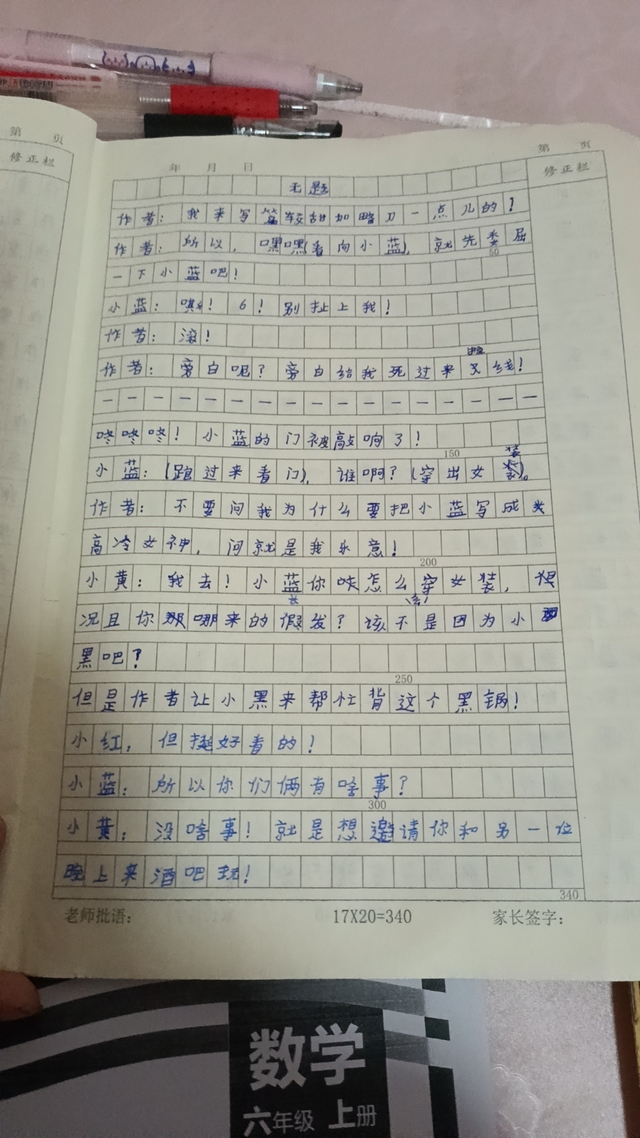 第 页
修正栏
第 页
修正栏
年 月 日
无题
作者：我来写篇较甜加略刀一点儿的！
作者：所以，嘿嘿(看向小蓝)，就先委屈
50
一下小蓝吧！
小蓝：哄！6！别扯上我！
作者：滚！
作者：旁白呢？旁白给我死过来 线！
————————————————
咚咚咚！小蓝的门被敲响了！
150
小蓝：(跑过来看门)，谁啊？(穿出女装)。
作者：不要问我为什么要把小蓝写成
高冷女神，问就是我乐意！
200
小黄：我去！小蓝你咋怎么穿女装，
况且你那哪来的长假发？该不会是因为小
黑吧？
250
但是作者让小黑来帮忙背这个黑锅！
小红，但挺好看的！
小蓝：所以你们俩有啥事？
300
小黄：没啥事！就是想邀请你和另一位
晚上来酒吧玩！
340
老师批语：
17X20=340
家长签字：
数学
六年级 上册